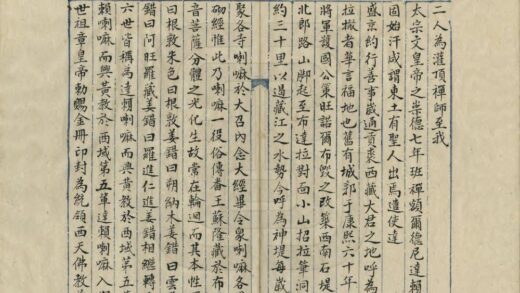 二人為灌頂禪師至我
太宗文皇帝之崇德七年班禪額爾德尼達賴
固始汗咸謂東土有聖人出焉遣使達
盛京約行善事歲通貢裘西藏大君之地呼為
拉撒者華言福地也舊有城郭于康熙六十年
將軍護國公策旺諾爾布毀之改築西南石堤
北郎路山腳起至布達拉對面小山招拉筆洞
約三十里以遏藏江之水勢今呼為神堤每歲
聚各寺喇嘛於大召內念大經畢令衆喇嘛各
砌經惟此乃喇嘛一役俗傳番王蘇隆藏於布
音菩薩分體之光化生故常在輪迴而其本性
曰根敦朱包曰根敦姜錯曰朔納木姜錯曰雲
錯曰阿旺羅藏姜錯曰羅進仁進姜錯相繼轉
六世皆稱為達賴喇嘛而興黃教於西域第五
賴喇嘛而興黃教於西域第五輩達賴喇嘛入
世祖章皇帝勅賜金冊印封為統領西天佛教